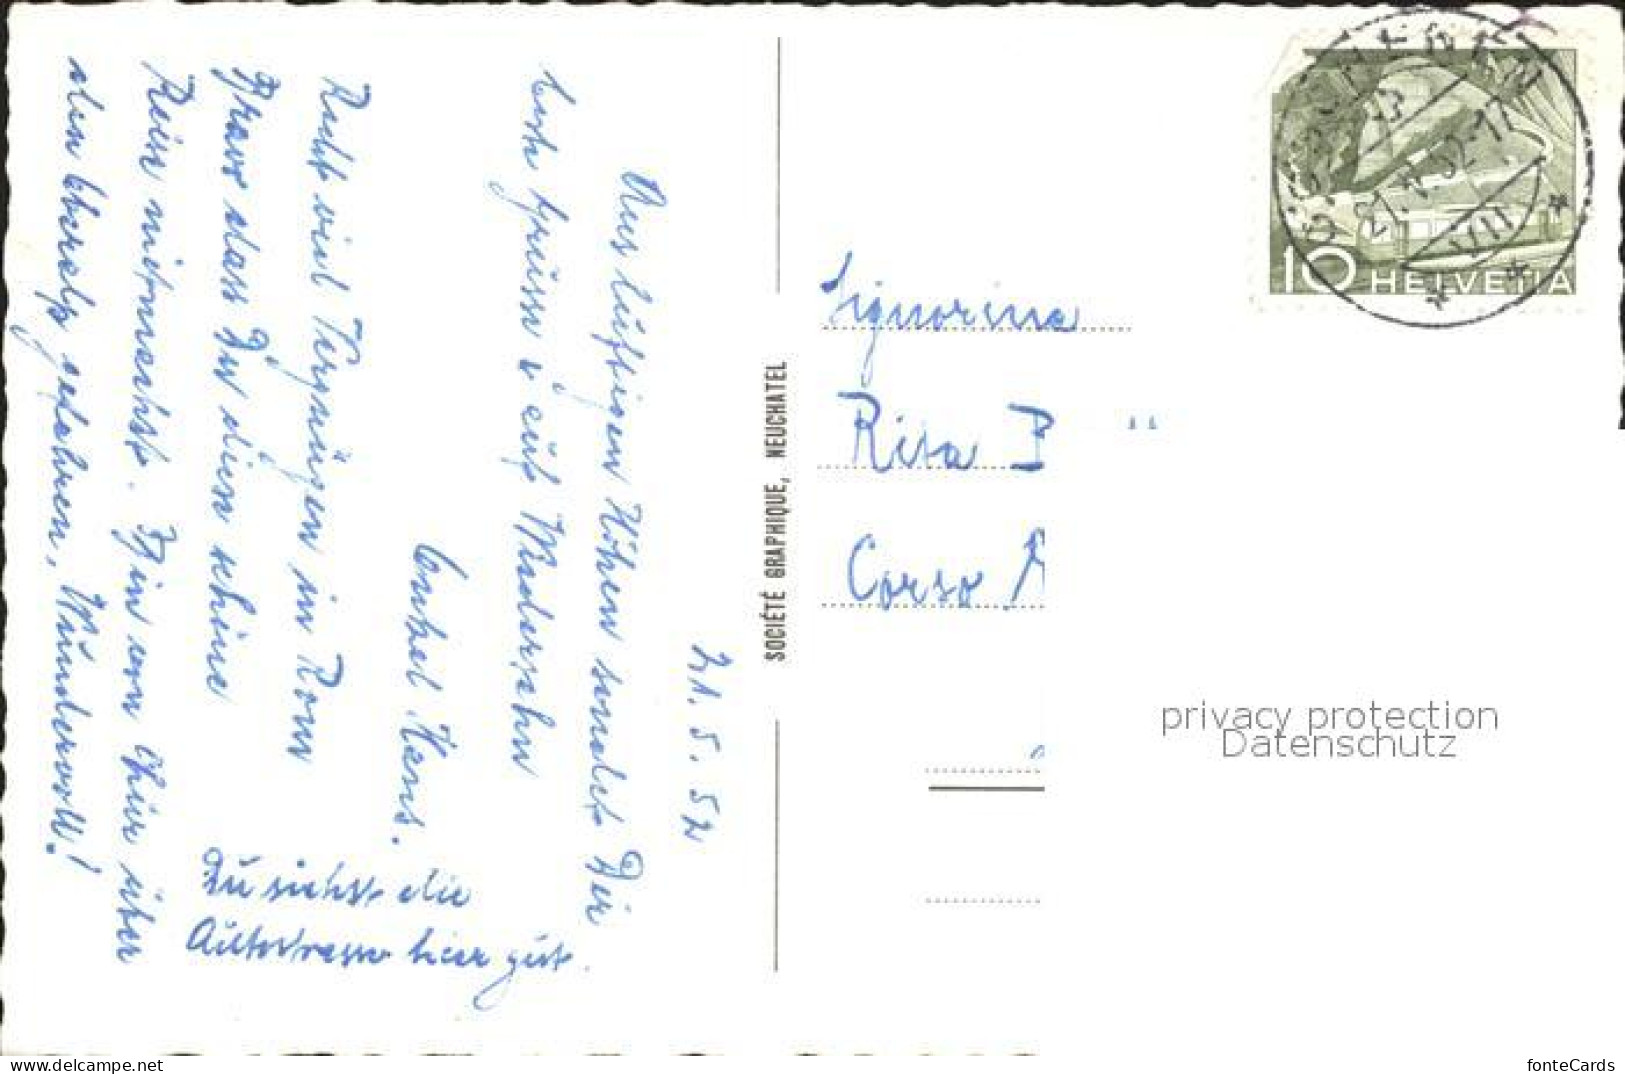 21. 5. 52
Aus luftigen Höhen sendet Dir
beste Grüsse & auf Wiedersehn
Onkel Hans.
Recht viel Vergnügen in Rom
Bravo dass Du diese schöne
Reise mitmachst. Bin von Chur über
den Oberalp gefahren, Wundervoll!
Du siehst die
Autostrasse hier gut.
SOCIÉTÉ GRAPHIQUE, NEUCHATEL
Signorina
Rita
Corso
10 HELVETIA
GÖSCHENEN
VII
privacy protection
Datenschutz
www.delcampe.net
fonteCards